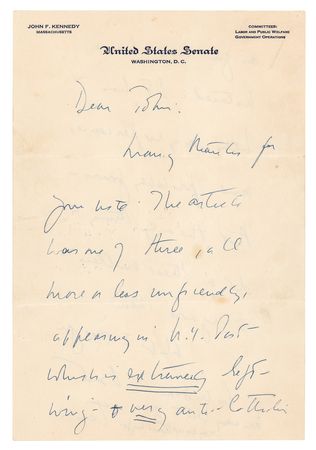 JOHN F. KENNEDY
MASSACHUSETTS
COMMITTEES:
LABOR AND PUBLIC WELFARE
GOVERNMENT OPERATIONS
United States Senate
WASHINGTON, D. C.
Dear John:
Many thanks for
your note. The article
was one of three, all
more or less unfriendly,
appearing in N.Y. Post -
which is extremely left-
wing - + very anti-Catholic